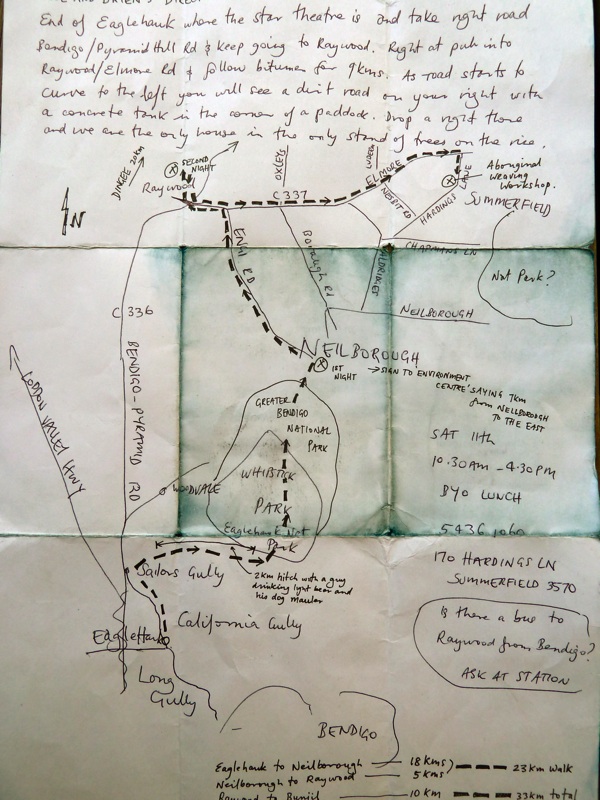 End of Eaglehawk where the star theatre is and take right road
Bendigo/Pyramid Hill Rd & keep going to Raywood. Right at pub into
Raywood/Elmore Rd & follow bitumen for 9kms. As road starts to
curve to the left you will see a dirt road on your right with
a concrete tank in the corner of a paddock. Drop a right there
and we are the only house in the only stand of trees on the rise.
DINGEE 20km
SECOND
NIGHT
Raywood
OXLEYS
C337
ELMORE
NESBIT RD
HARDINGS
LANE
Aboriginal
Weaving
Workshop.
SUMMERFIELD
N
CHAPMANS LN
Nat Park?
ENNII RD
Borough Rd
NEILBOROUGH
C336
BENDIGO-PYRAMID RD
LODDON VALLEY HWY
NEILBOROUGH
1ST
NIGHT
SIGN TO ENVIRONMENT
CENTRE 'SAYING 7km
from NEILBOROUGH
TO THE EAST
GREATER
BENDIGO
NATIONAL
PARK
SAT 11th
10.30AM - 4.30PM
BYO LUNCH
WHIPSTICK
PARK
WOODVALE
Eaglehawk Nat
Park
5436
170 HARDINGS LN
SUMMERFIELD 3570
Sailors Gully
2km hitch with a guy
drinking light beer and
his dog Mauler
California Gully
Eaglehawk
Long
Gully
Is there a bus to
Raywood from Bendigo?
ASK AT STATION
BENDIGO
Eaglehawk to Neilborough 18 kms) 23km walk
Neilborough to Raywood 5 kms)
Raywood to 10 km 33km total